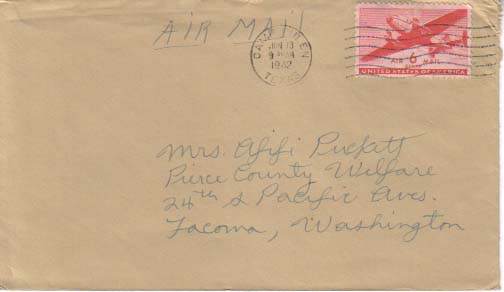 AIR MAIL
JUN 13
9 AM
1942
TEXAS
AIR 6 MAIL
UNITED STATES OF AMERICA
Mrs. Afifi Puckett
Pierce County Welfare
24th & Pacific Aves.
Tacoma, Washington